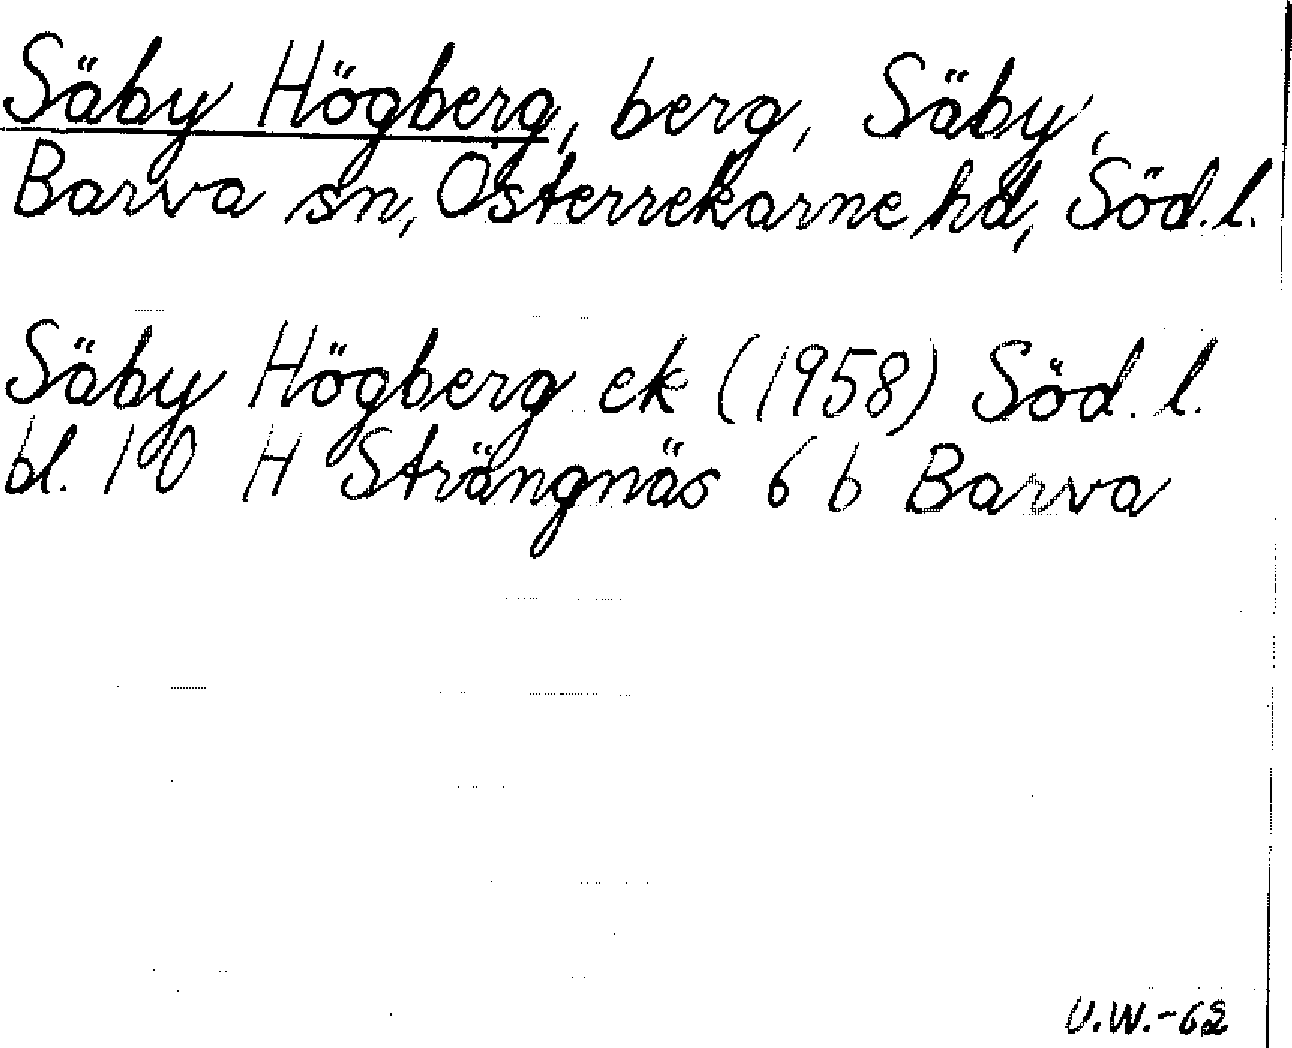 Säby Högberg, berg, Säby,
Barva sn, Österrekarne hd, Söd.l.
Säby Högberg ek (1958) Söd.l.
bl. 10 H Strängnäs 6 b Barva
U.W.-62